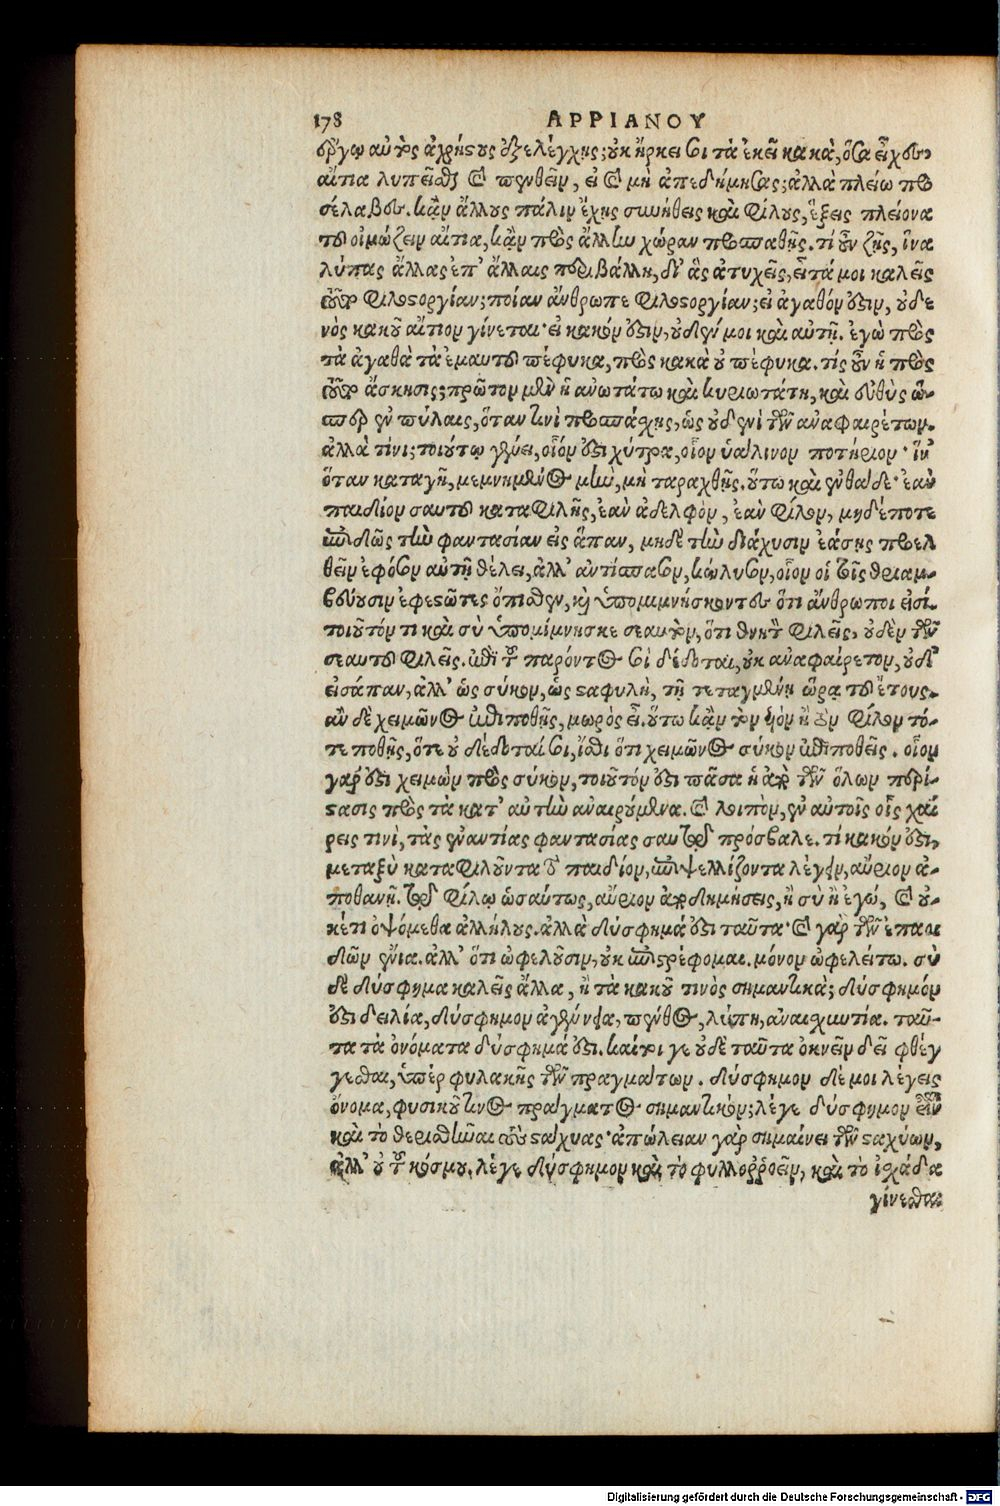 178 ΑΡΡΙΑΝΟΥ
ἔργῳ αὐτὸς ἀχρήστους ἐξελέγχῃς; οὐκ ἤρκει σοι τὰ ἐκεῖ κακὰ, ὅσα εἶχες
αἴτια λυπεῖσθαι καὶ πενθεῖν, εἰ καὶ μὴ ἀπεδήμησας; ἀλλὰ πλείω προ
σέλαβες. κἂν ἄλλους πάλιν ἔχῃς συνήθεις καὶ φίλους, ἕξεις πλείονα
τοῦ οἰμώζειν αἴτια, κἂν πρὸς ἄλλην χώραν προσπαθῇς. τί οὖν ζῇς, ἵνα
λύπας ἄλλας ἐπ' ἄλλαις περιβάλλῃ, δι' ἃς ἀτυχεῖς, εἶτά μοι καλεῖς
τοῦτο φιλοστοργίαν; ποίαν ἄνθρωπε φιλοστοργίαν; εἰ ἀγαθόν ἐστιν, οὐδε
νὸς κακοῦ αἴτιον γίνεται· εἰ κακόν ἐστιν, οὐδέν μοι καὶ αὐτῇ. ἐγὼ πρὸς
τὰ ἀγαθὰ τὰ ἐμαυτοῦ πέφυκα, πρὸς κακὰ οὐ πέφυκα. τίς οὖν ἡ πρὸς
τοῦτο ἄσκησις; πρῶτον μὲν ἡ ἀνωτάτω καὶ κυριωτάτη, καὶ εὐθὺς ὥ-
σπερ ἐν πύλαις, ὅταν τινὶ προσπάσχῃς, ὡς οὐδενὶ τῶν ἀναφαιρέτων.
ἀλλὰ τίνι; τοιούτῳ γένει, οἷόν ἐστι χύτρα, οἷον ὑάλινον ποτήριον· ἵν'
ὅταν καταγῇ, μεμνημένος μὲν, μὴ ταραχθῇς. οὕτω καὶ ἐνθάδε· ἐὰν
παιδίον σαυτοῦ καταφιλῇς, ἐὰν ἀδελφὸν, ἐὰν φίλον, μηδέποτε
ἐπιδῷς τὴν φαντασίαν εἰς ἅπαν, μηδὲ τὴν διάχυσιν ἐάσῃς προελ
θεῖν ἐφ' ὅσον αὐτὴ θέλει, ἀλλ' ἀντίσπασον, κώλυσον, οἷον οἱ τοῖς θριαμ-
βεύουσιν ἐφεστῶτες ὄπισθεν, καὶ ὑπομιμνήσκοντες ὅτι ἄνθρωποι εἰσί.
τοιοῦτόν τι καὶ σὺ ὑπομίμνησκε σεαυτὸν, ὅτι θνητὸν φιλεῖς, οὐδὲν τῶν
σεαυτοῦ φιλεῖς. ἐπὶ τοῦ παρόντος σοὶ δέδοται, οὐκ ἀναφαίρετον, οὐδ'
εἰσάπαν, ἀλλ' ὡς σύκον, ὡς σταφυλὴ, τῇ τεταγμένῃ ὥρᾳ τοῦ ἔτους.
ἂν δὲ χειμῶνος ἐπιποθῇς, μωρὸς εἶ, οὕτω κἂν τὸν ὑὸν ἢ τὸν φίλον τό-
τε ποθῇς, ὅτε οὐ δέδοταί σοι, ἴσθι ὅτι χειμῶνος σύκον ἐπιποθεῖς. οἷον
γάρ ἐστι χειμὼν πρὸς σύκον, τοιοῦτόν ἐστι πᾶσα ἡ ἀπὸ τῶν ὅλων περί-
στασις πρὸς τὰ κατ' αὐτὴν ἀναιρούμενα. καὶ λοιπὸν, ἐν αὐτοῖς οἷς χαί
ρεις τινὶ, τὰς ἐναντίας φαντασίας σαυτῷ πρόσβαλε. τί κακόν ἐστι,
μεταξὺ καταφιλοῦντα τὸ παιδίον, ἐπιψελλίζοντα λέγειν, αὔριον ἀ-
ποθανῇ. τῷ φίλῳ ὡσαύτως, αὔριον ἀποδημήσεις, ἢ σὺ ἢ ἐγώ, καὶ οὐ-
κέτι ὀψόμεθα ἀλλήλους. ἀλλὰ δύσφημά ἐστι ταῦτα· καὶ γὰρ τῶν ἐπαοι
δῶν ἔνια. ἀλλ' ὅτι ὠφελοῦσιν, οὐκ ἐπιστρέφομαι. μόνον ὠφελείτω. σὺ
δὲ δύσφημα καλεῖς ἄλλα, ἢ τὰ κακοῦ τινὸς σημαντικά; δύσφημόν
ἐστι δειλία, δύσφημον ἀγέννεια, πένθος, λύπη, ἀναισχυντία. ταῦ-
τα τὰ ὀνόματα δύσφημά ἐστι. καίτοι γε οὐδὲ ταῦτα ὀκνεῖν δεῖ φθέγ
γεσθαι, ὑπὲρ φυλακῆς τῶν πραγμάτων. δύσφημον δέ μοι λέγεις
ὄνομα, φυσικοῦ τινος πράγματος σημαντικόν; λέγε δύσφημον εἶναι
καὶ τὸ θερισθῆναι τοὺς στάχυας· ἀπώλειαν γὰρ σημαίνει τῶν σταχύων,
ἀλλ' οὐ τοῦ κόσμου. λέγε δύσφημον καὶ τὸ φυλλορροεῖν, καὶ τὸ ἰσχάδα
γίνεσθαι
Digitalisierung gefördert durch die Deutsche Forschungsgemeinschaft - DFG